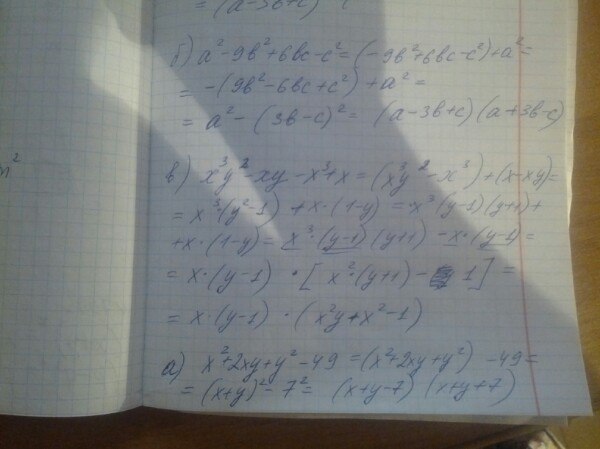 = (a-3b+c) (
б) a²-9b²+6bc-c² = (-9b²+6bc-c²)+a² =
= -(9b²-6bc+c²) +a² =
= a² - (3b-c)² = (a-3b+c)(a+3b-c)
n²
в) x³y²-xy-x³+x = (x³y²-x³)+(x-xy)=
= x³(y²-1) +x·(1-y) = x³(y-1)(y+1)+
+x·(1-y) = x³·(y-1)(y+1) -x·(y-1)=
= x·(y-1) · [x²·(y+1) - 1] =
= x·(y-1) · (x²y+x²-1)
а) x²+2xy+y²-49 = (x²+2xy+y²) -49=
= (x+y)²-7² = (x+y-7) (x+y+7)